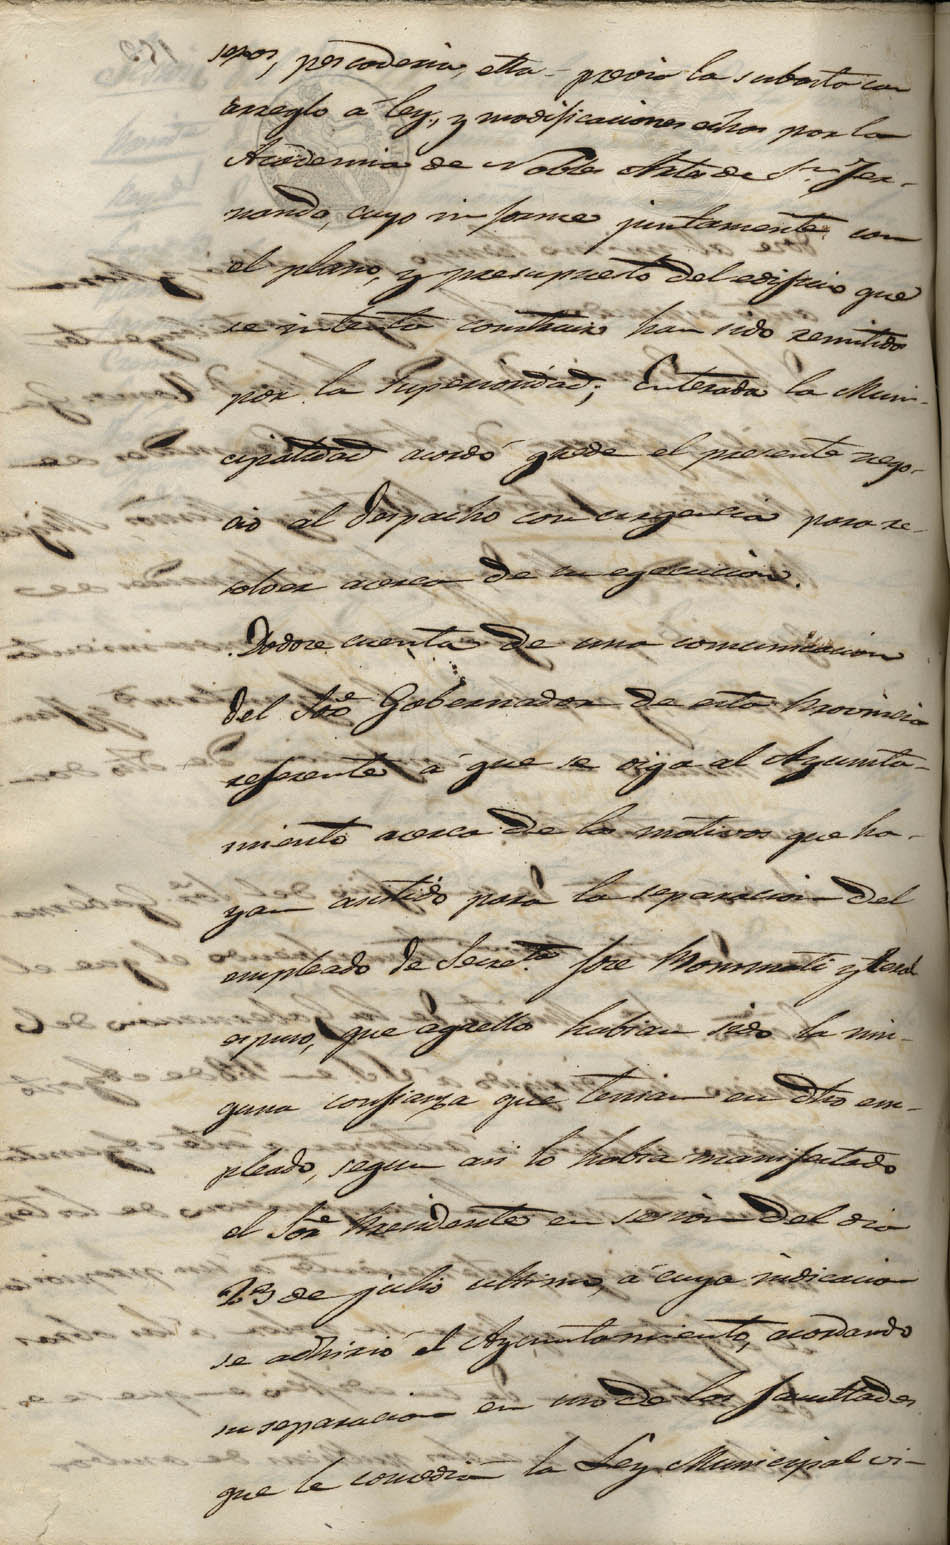 seos, pescaderia, etta. previa la subasta con
arreglo á ley, y modificaciones echas por la
Academia de Nobles Artes de Sn. Fer-
nando, cuyo informe juntamente con
el plano, y presupuesto del edificio que
se intenta construir han sido remitidos
por la Superioridad; Enterada la Muni-
cipalidad acordó quede el presente nego-
cio al despacho con urgencia para re-
solver acerca de su ejecucion.
Dodore cuenta de una comunicacion
del Sor. Gobernador de esta Provincia
referente á que se oiga al Ayunta-
miento acerca de los motivos que ha-
yan asistido para la separacion del
empleado de Secreta. Jose Monmati y
espuso, que aquello habian sido la nin-
guna confianza que tenian en dho em-
pleado, segun asi lo habia manifestado
el Sor. Presidente en sesion del dia
23 de julio ultimo, á cuya indicacion
se adhirió el Ayuntamiento, acordando
su separacion en uso de las facultades
que le concedia la Ley Municipal vi-